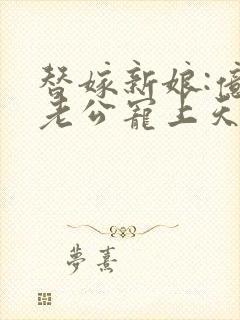 替嫁新娘:億
老公寵上天
夢熹